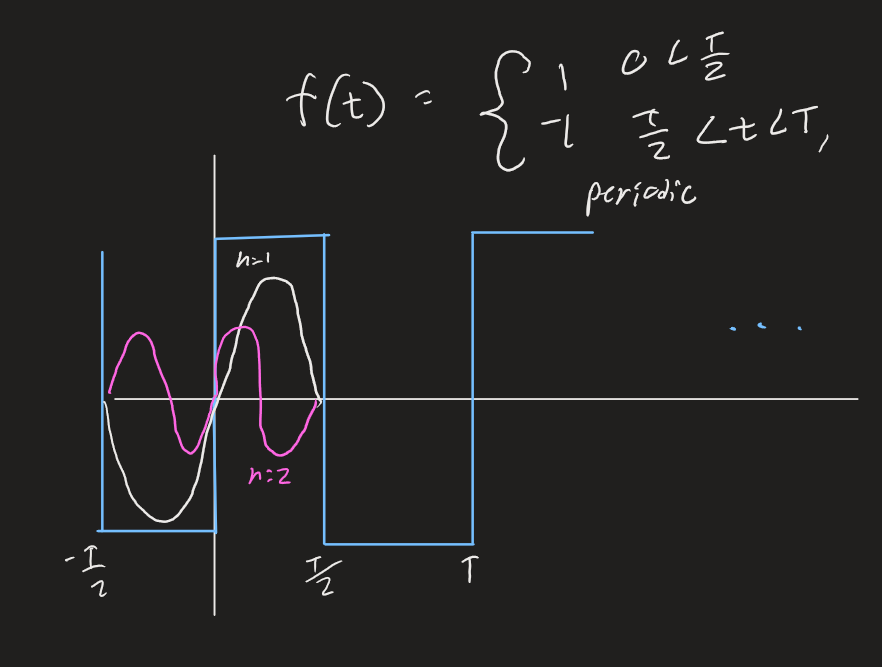 f(t) = { 1 0 < T/2
-1 T/2 < t < T,
periodic
n=1
n=2
-T/2 T/2 T